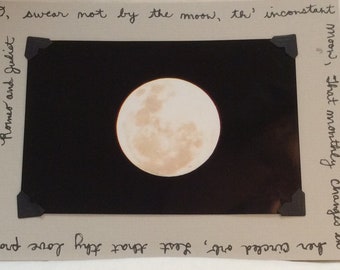 O, swear not by the moon, th' inconstant
moon, that monthly changes in
her circled orb, Lest that thy love pro
Romeo and Juliet